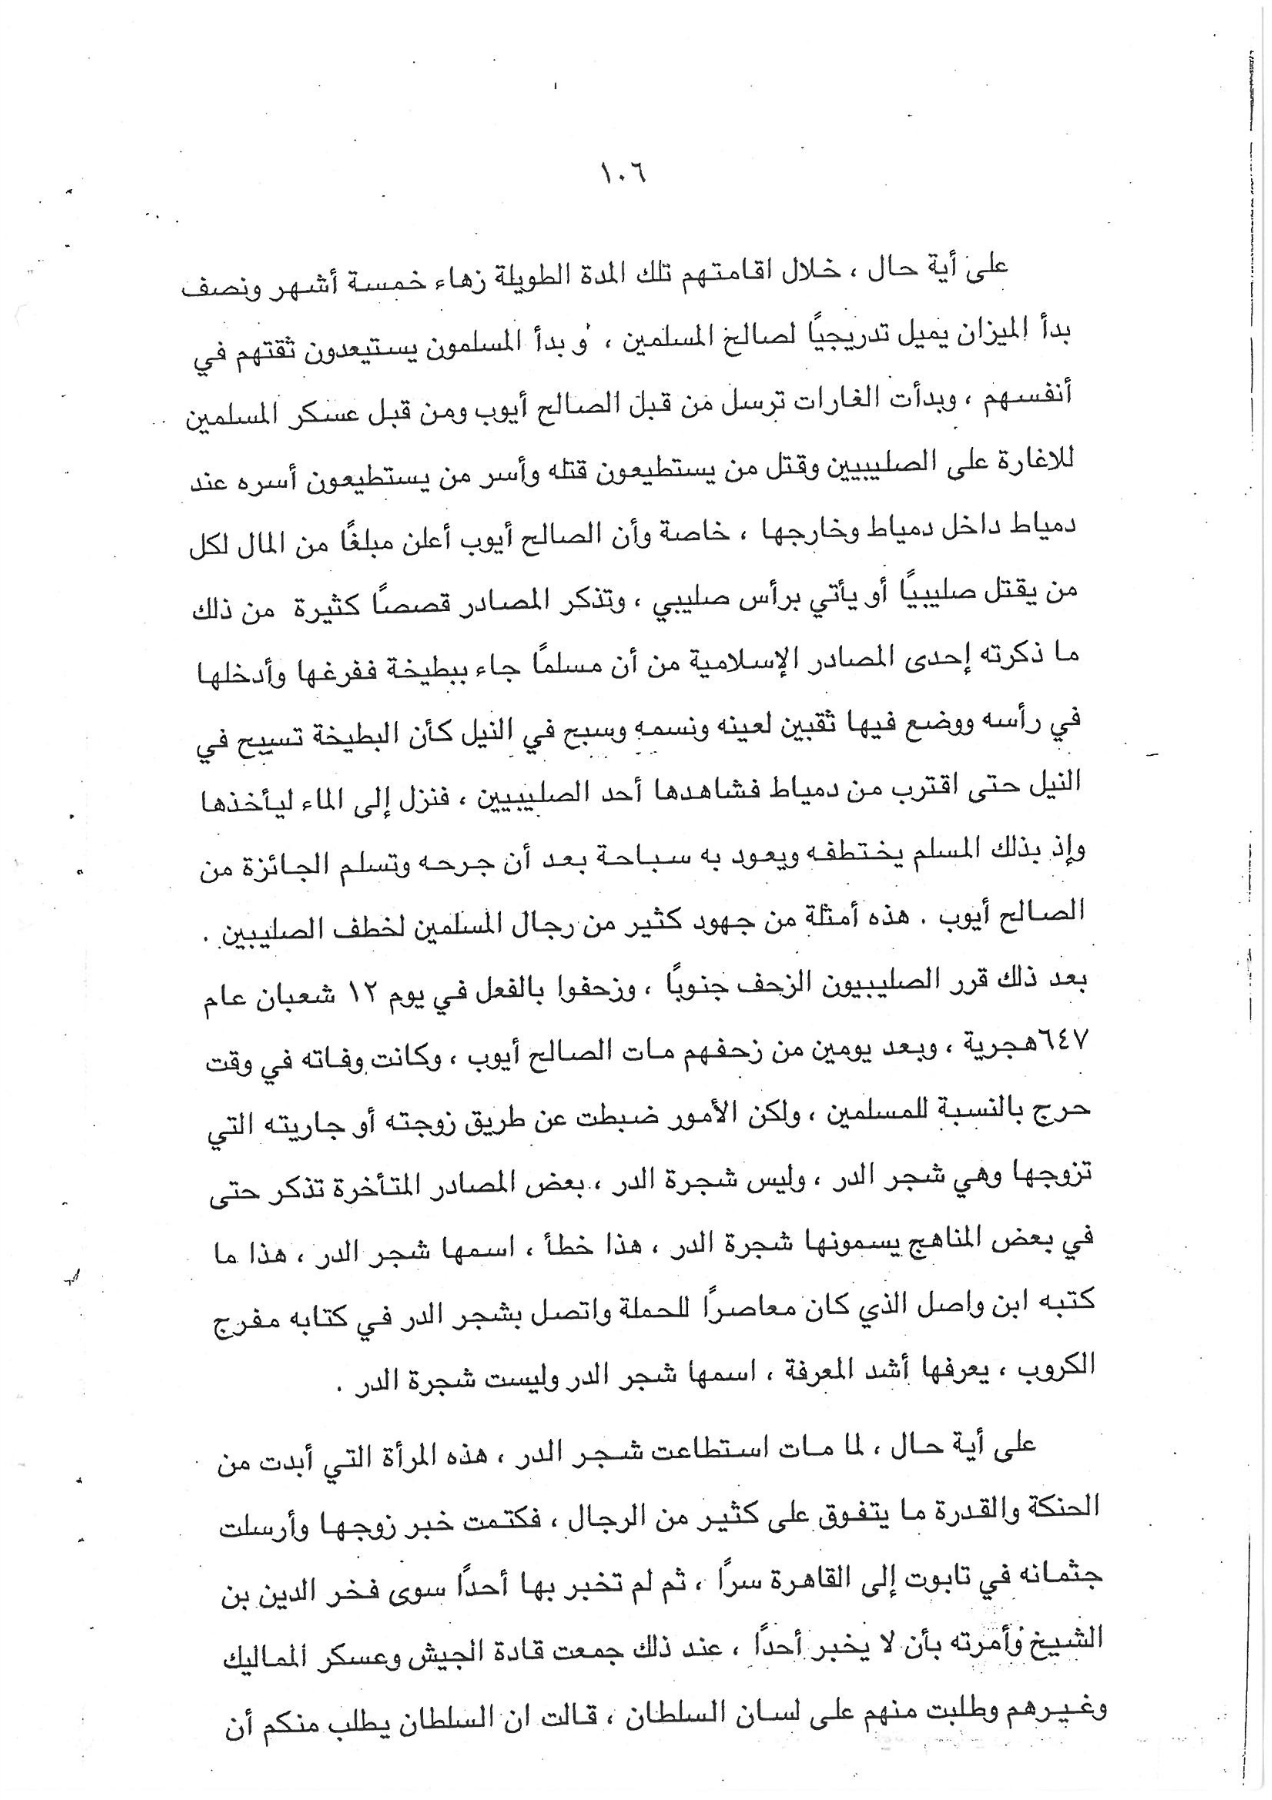 ١٠٦
على أية حال ، خلال اقامتهم تلك المدة الطويلة زهاء خمسة أشهر ونصف
بدأ الميزان يميل تدريجيًا لصالح المسلمين ، و بدأ المسلمون يستيعدون ثقتهم في
أنفسهم ، وبدأت الغارات ترسل من قبل الصالح أيوب ومن قبل عسكر المسلمين
للاغارة على الصليبيين وقتل من يستطيعون قتله وأسر من يستطيعون أسره عند
دمياط داخل دمياط وخارجها ، خاصة وأن الصالح أيوب أعلن مبلغًا من المال لكل
من يقتل صليبيًا أو يأتي برأس صليبي ، وتذكر المصادر قصصًا كثيرة من ذلك
ما ذكرته إحدى المصادر الإسلامية من أن مسلمًا جاء ببطيخة ففرغها وأدخلها
في رأسه ووضع فيها ثقبين لعينه ونسمه وسبح في النيل كأن البطيخة تسيح في
النيل حتى اقترب من دمياط فشاهدها أحد الصليبيين ، فنزل إلى الماء ليأخذها
وإذ بذلك المسلم يختطفه ويعود به سباحة بعد أن جرحه وتسلم الجائزة من
الصالح أيوب . هذه أمثلة من جهود كثير من رجال المسلمين لخطف الصليبين .
بعد ذلك قرر الصليبيون الزحف جنوبًا ، وزحفوا بالفعل في يوم ١٢ شعبان عام
٦٤٧هجرية ، وبعد يومين من زحفهم مات الصالح أيوب ، وكانت وفاته في وقت
حرج بالنسبة للمسلمين ، ولكن الأمور ضبطت عن طريق زوجته أو جاريته التي
تزوجها وهي شجر الدر ، وليس شجرة الدر ، بعض المصادر المتأخرة تذكر حتى
في بعض المناهج يسمونها شجرة الدر ، هذا خطأ ، اسمها شجر الدر ، هذا ما
كتبه ابن واصل الذي كان معاصرًا للحملة واتصل بشجر الدر في كتابه مفرج
الكروب ، يعرفها أشد المعرفة ، اسمها شجر الدر وليست شجرة الدر .
على أية حال ، لما مات استطاعت شجر الدر ، هذه المرأة التي أبدت من
الحنكة والقدرة ما يتفوق على كثير من الرجال ، فكتمت خبر زوجها وأرسلت
جثمانه في تابوت إلى القاهرة سرًا ، ثم لم تخبر بها أحدًا سوى فخر الدين بن
الشيخ وأمرته بأن لا يخبر أحدًا ، عند ذلك جمعت قادة الجيش وعسكر المماليك
وغيرهم وطلبت منهم على لسان السلطان ، قالت ان السلطان يطلب منكم أن